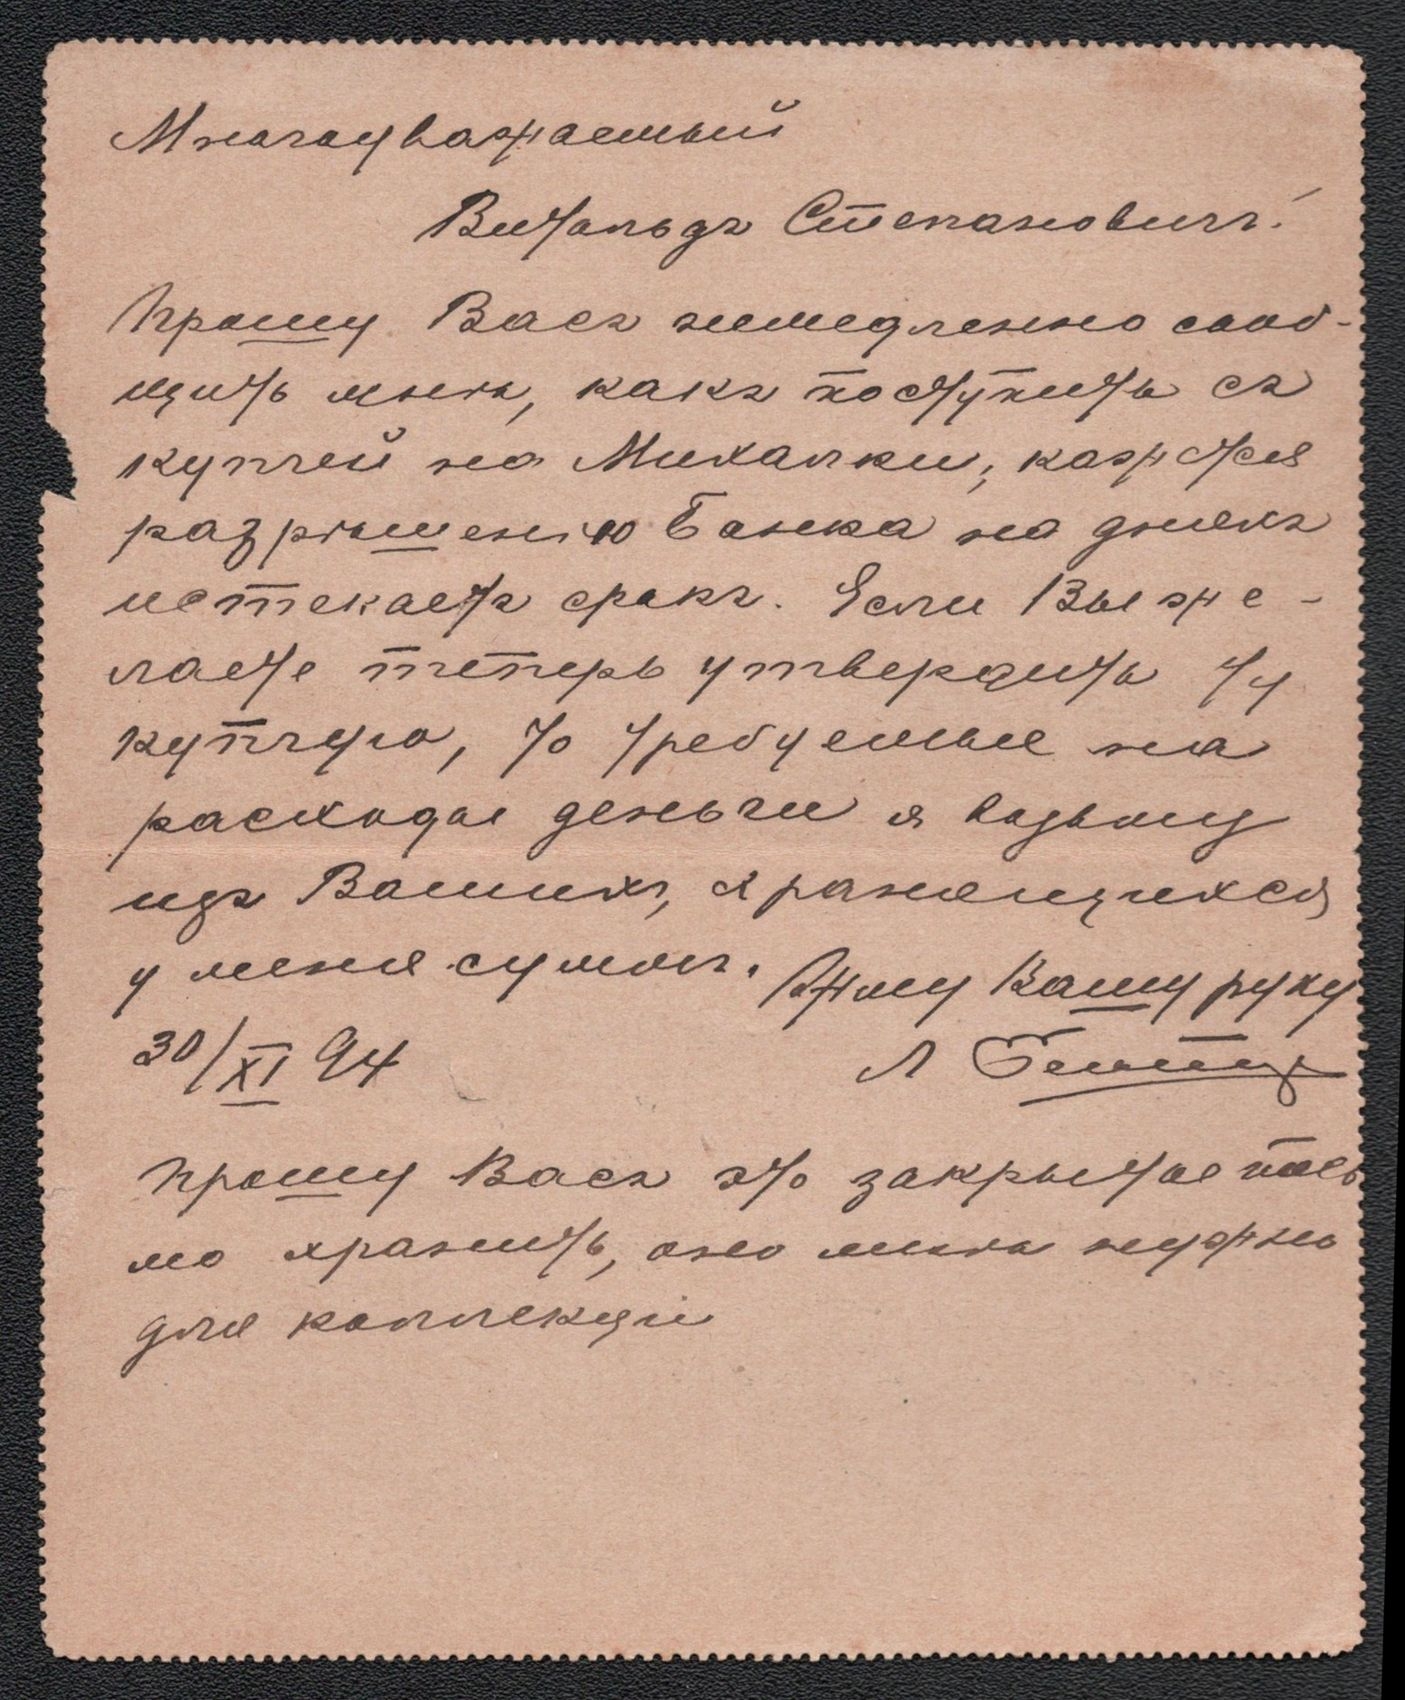 Многоуважаемый
Витольдъ Степановичъ!
Прошу Васъ немедленно сооб-
щить мнѣ, какъ поступить съ
купчей на Михалки, кажется
разрѣшенію Банка на дняхъ
истекаетъ срокъ. Если Вы же-
лаете теперь утвердить ту
купчую, то требуемые на
расходы деньги я возьму
изъ Вашихъ, хранящихся
у меня суммъ. Жму Вашу руку
30/XI 94 Л
Прошу Васъ это закрытое пись
мо хранить, оно мнѣ нужно
для коллекціи